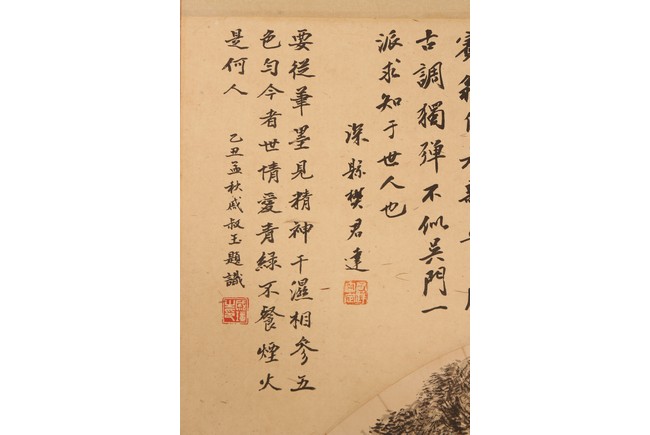 古調獨彈不似吳門一
派求知于世人也
深縣樊君達
要從筆墨見精神干濕相參五
色勻今者世情愛青綠不餐煙火
是何人
乙丑孟秋戚叔玉題識